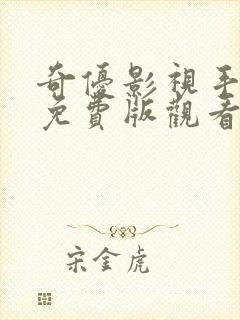 奇優影視手
免費版觀看
宋金虎